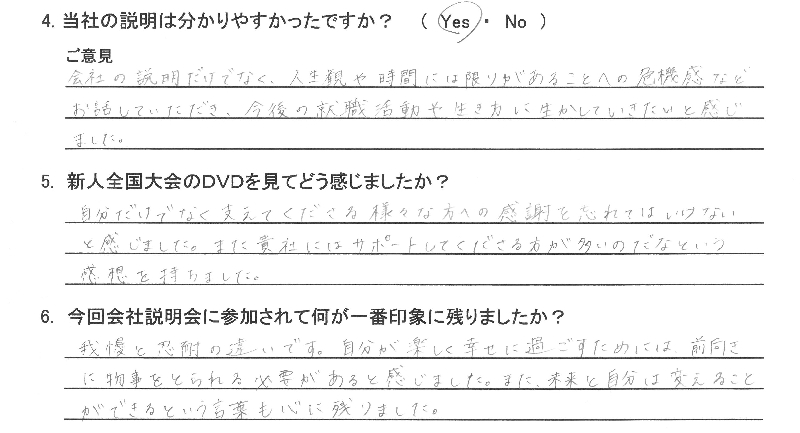 4. 当社の説明は分かりやすかったですか？ （ Yes ・ No ）
ご意見
会社の説明だけでなく、人生観や時間には限りがあることへの危機感など
お話していただき、今後の就職活動や生き方に生かしていきたいと感じ
ました。
5. 新人全国大会のDVDを見てどう感じましたか？
自分だけでなく支えてくださる様々な方への感謝を忘れてはいけない
と感じました。また貴社にはサポートしてくださる方が多いのだなという
感想を持ちました。
6. 今回会社説明会に参加されて何が一番印象に残りましたか？
我慢と忍耐の違いです。自分が楽しく幸せに過ごすためには、前向き
に物事をとられる必要があると感じました。また、未来と自分は変えること
ができるという言葉も心に残りました。